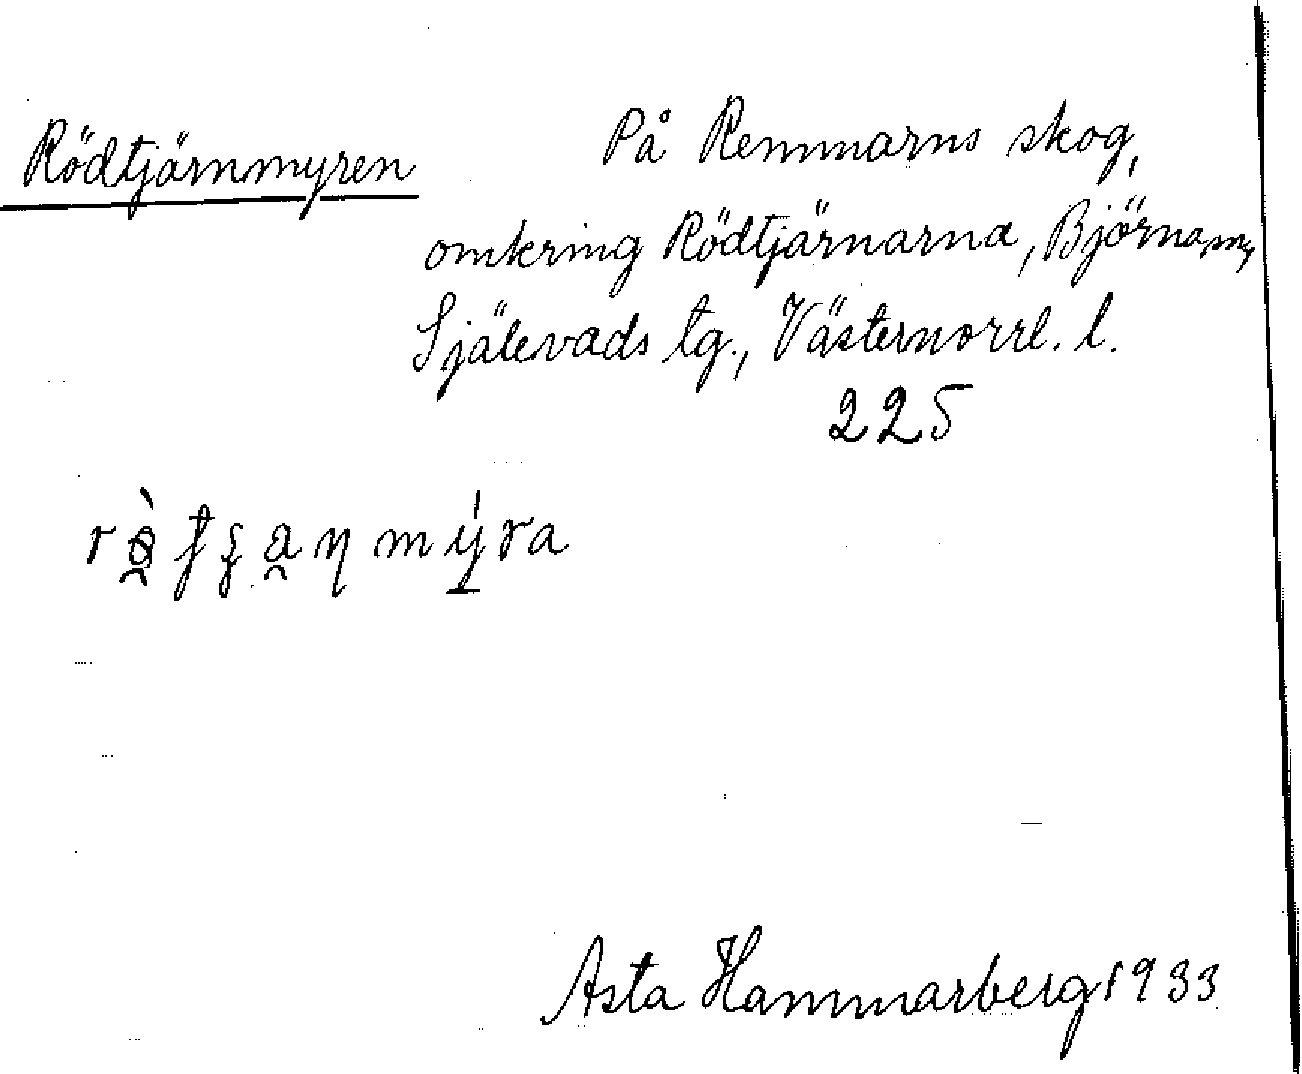 Rödtjärnmyren
På Remmarns skog,
omkring Rödtjärnarna, Björna sn,
Själevads tg., Västernorrl. l.
225
Asta Hammarberg 1933